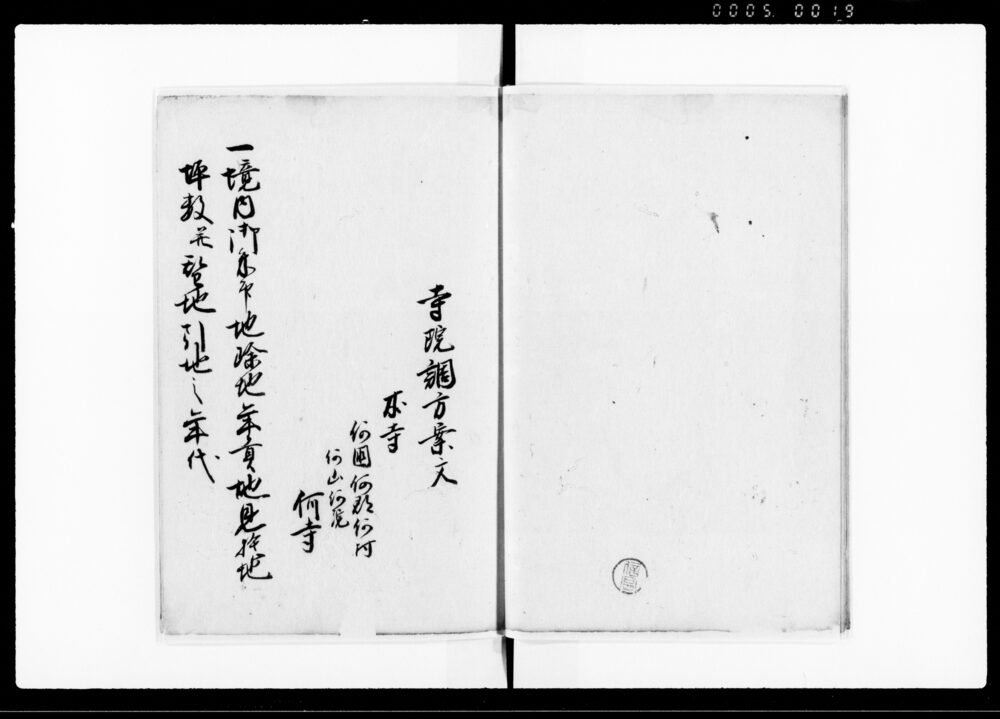 0005. 0019
寺院調方案文
本寺
何国何郡何村
何山何院
何寺
一境内御朱印地除地年貢地見捨地
坪数并替地引地之年代